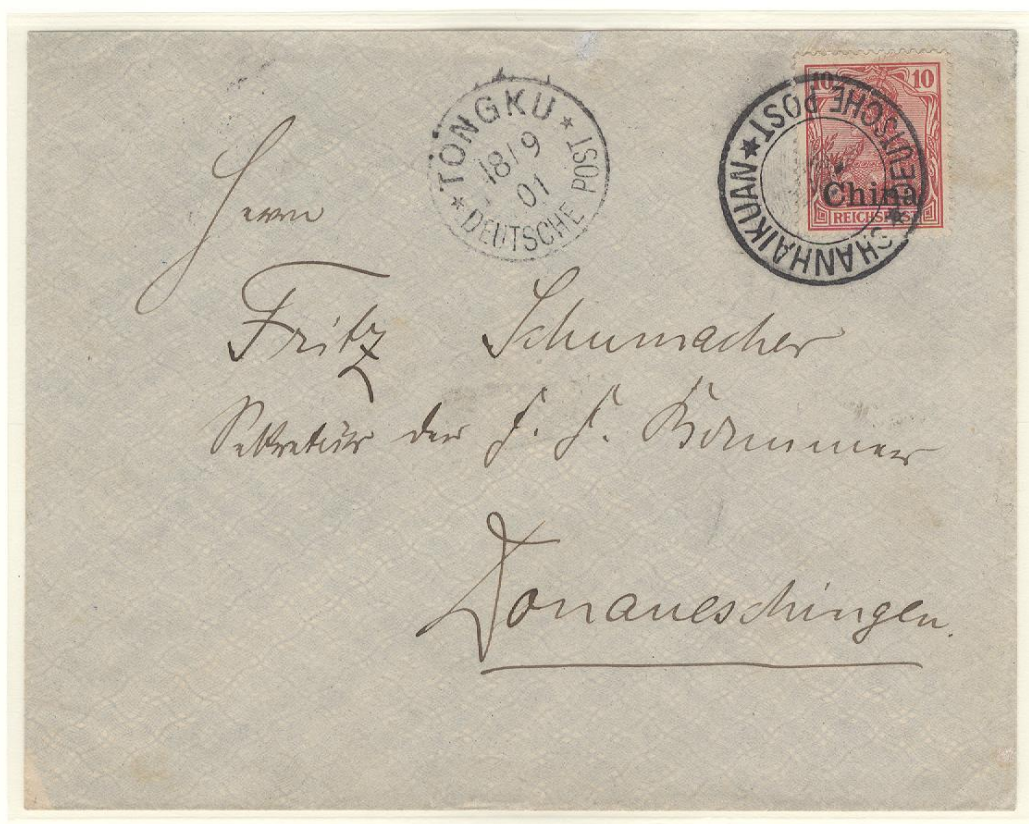 TONGKU
18/9
01
DEUTSCHE POST
SCHANHAIKUAN
DEUTSCHE POST
10 10
China
REICHSPOST
Herrn
Fritz Schumacher
Sekretär der F. F. Kammer
Donaueschingen.